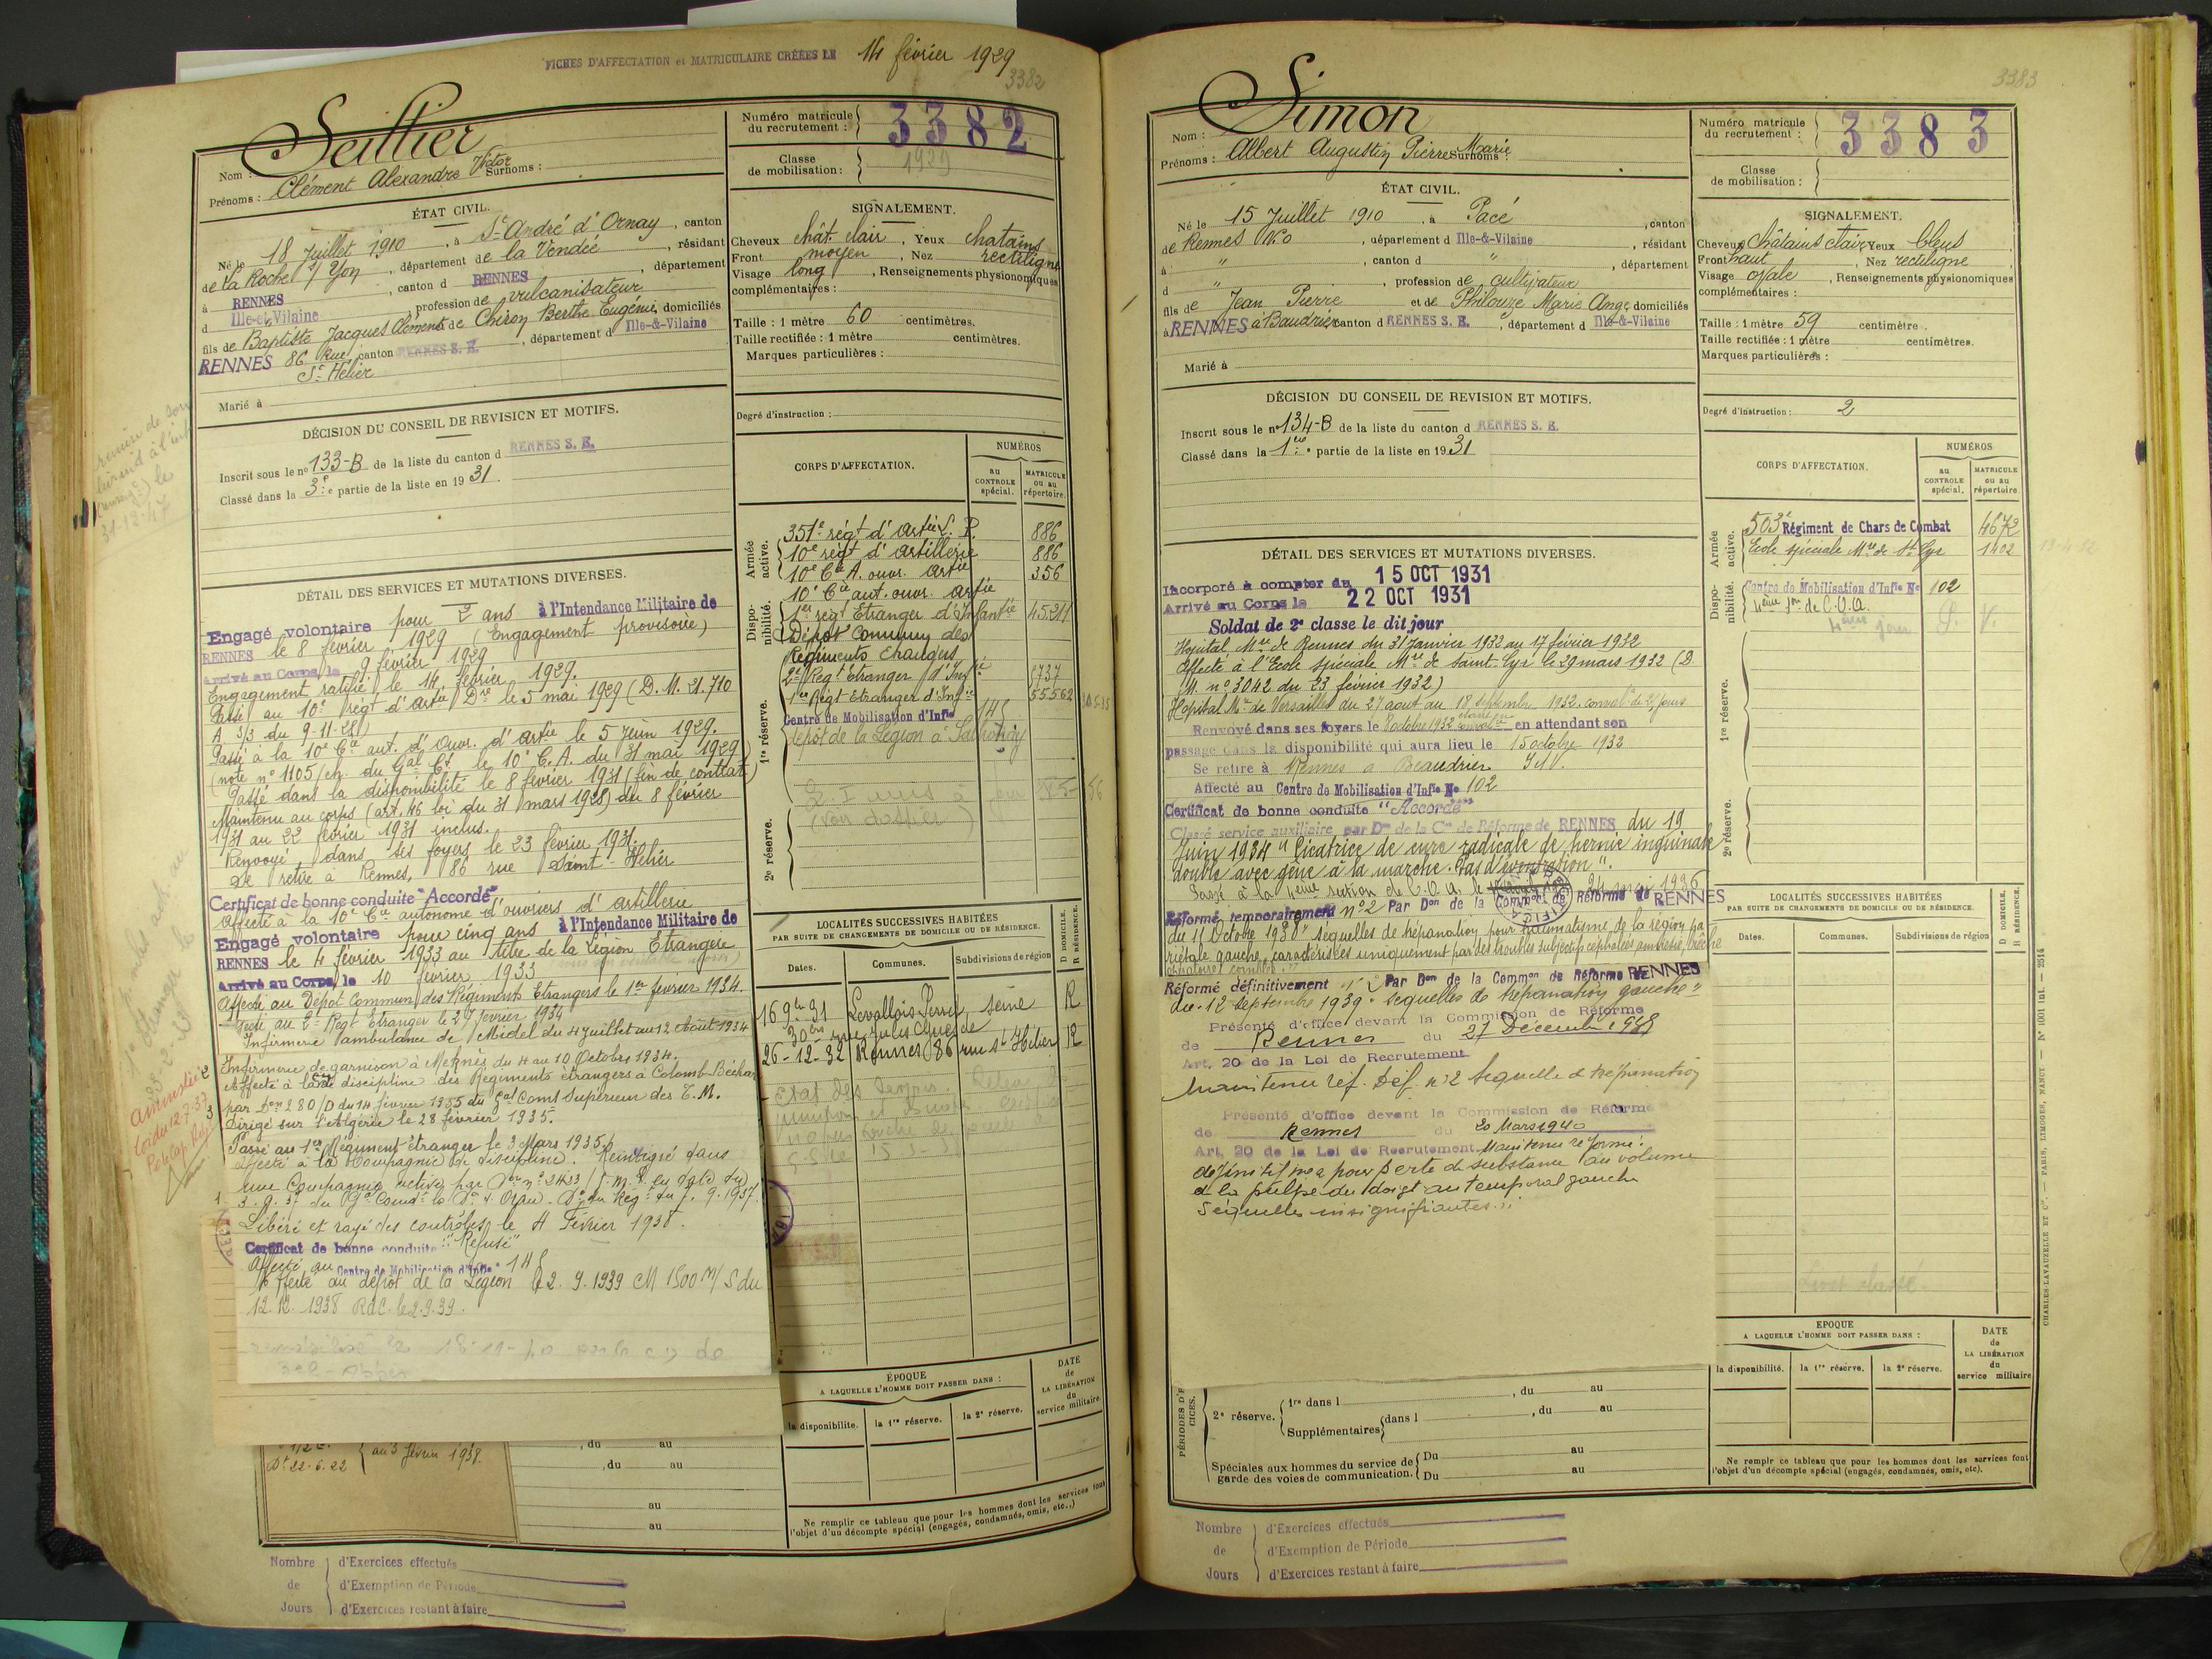 FICHES D'AFFECTATION et MATRICULAIRE CRÉÉES LE 14 février 1929
3382
Nom : Seillier
Prénoms : Clément Alexandre Victor Surnoms :
Numéro matricule du recrutement : 3382
Classe de mobilisation : 1929
ÉTAT CIVIL.
Né le 18 Juillet 1910, à St André d'Ornay, canton
de La Roche s/ Yon, département de la Vendée, résidant
à RENNES, canton d RENNES, département
d Ille-et-Vilaine, profession de vulcanisateur
fils de Baptiste Jacques Clément et de Chiron Berthe Eugénie, domiciliés
RENNES 86 Rue St Hélier, canton RENNES S. E., département d Ille-&-Vilaine
Marié à
SIGNALEMENT.
Cheveux chât. clair, Yeux chatains
Front moyen, Nez rectiligne
Visage long, Renseignements physionomiques
complémentaires :
Taille : 1 mètre 60 centimètres.
Taille rectifiée : 1 mètre centimètres.
Marques particulières :
Degré d'instruction :
DÉCISION DU CONSEIL DE REVISION ET MOTIFS.
Inscrit sous le no 133-B de la liste du canton d RENNES S. E.
Classé dans la 3e partie de la liste en 1931.
CORPS D'AFFECTATION.
NUMÉROS
au CONTROLE spécial.
MATRICULE ou au répertoire.
Armée active.
351e régt d'artie L. P. 886
10e régt d'artillerie 886
10e Cie A. ouvr. artie 356
Disponibilité.
10e Cie aut. ouvr. artie
1er regt Etranger d'Infantie 45211
Dépôt Commun des
Régiments Etrangers
1re réserve.
2e Regt Etranger d'Infie 8737
1er Regt Etranger d'Infie 55562
Centre de Mobilisation d'Infie 148
dépôt de la Légion à Sathonay
2e réserve.
(voir dossier)
DÉTAIL DES SERVICES ET MUTATIONS DIVERSES.
Engagé volontaire pour 2 ans à l'Intendance Militaire de
RENNES le 8 février 1929 (Engagement provisoire)
Arrivé au Corps le 9 février 1929
Engagement ratifié le 14 février 1929.
Passé au 10e régt d'artie Dre le 5 mai 1929 (D. M. 21.710
A 3/3 du 9-11-28)
Passé à la 10e Cie aut. d'Ouvr. d'artie le 5 Juin 1929.
(note no 1105/ch. du Gal Ct le 10e C. A. du 31 mai 1929)
Passé dans la disponibilité le 8 février 1931 (fin de contrat)
Maintenu au corps (art. 46 loi du 31 mars 1928) du 8 février
1931 au 22 février 1931 inclus.
Renvoyé dans ses foyers le 23 février 1931.
Se retire à Rennes, 86 rue Saint-Hélier
Certificat de bonne conduite "Accordé"
Affecté à la 10e Cie autonome d'ouvriers d'artillerie
Engagé volontaire pour cinq ans à l'Intendance Militaire de
RENNES le 4 février 1933 au titre de la Légion Etrangère
Arrivé au Corps le 10 février 1933
Affecté au Dépôt Commun des Régiments Etrangers le 1er février 1934.
Passé au 2e Regt Etranger le 27 février 1934
Infirmerie ambulance de Midel du 4 Juillet au 12 Août 1934
Infirmerie de garnison à Meknès du 4 au 10 Octobre 1934.
Affecté à la Cie de discipline des Régiments étrangers à Colomb-Béchar
par Don 280/D du 14 février 1935 du Gal Comt Supérieur des T. M.
Dirigé sur l'Algérie le 28 février 1935.
Passé au 1er Régiment étranger le 3 Mars 1935
affecté à la Compagnie de discipline. Réintégré dans
une Compagnie active par Don no 2433
Libéré et rayé des contrôles le 4 Février 1938.
Certificat de bonne conduite "Refusé"
Affecté au Centre de Mobilisation d'Infie 148
Affecté au dépôt de la Légion le 2. 9. 1939 CM 1500 M/S du
12. 12. 1938 RdC. le 2.9.39.
Amnistié
Loi du 12.7.37
LOCALITÉS SUCCESSIVES HABITÉES
PAR SUITE DE CHANGEMENTS DE DOMICILE OU DE RÉSIDENCE.
Dates. Communes. Subdivisions de région D DOMICILE. R RÉSIDENCE.
16 9bre 31 Levallois Perret Seine R
26-12-32 Rennes 86 rue St Hélier R
ÉPOQUE
A LAQUELLE L'HOMME DOIT PASSER DANS :
DATE de LA LIBÉRATION du service militaire.
la disponibilité. la 1re réserve. la 2e réserve.
Dt 22-6.22 au 3 février 1938.
, du au
, du au
au
au
Ne remplir ce tableau que pour les hommes dont les services font
l'objet d'un décompte spécial (engagés, condamnés, omis, etc.,)
Nombre de Jours
d'Exercices effectués
d'Exemption de Période
d'Exercices restant à faire
3383
Nom : Simon
Prénoms : Albert Augustin Pierre Marie Surnoms :
Numéro matricule du recrutement : 3383
Classe de mobilisation :
ÉTAT CIVIL.
Né le 15 Juillet 1910, à Pacé, canton
de Rennes No, département d Ille-&-Vilaine, résidant
à ", canton d ", département
d ", profession de cultivateur
fils de Jean Pierre et de Philouze Marie Ange, domiciliés
à RENNES à Baudrier, canton d RENNES S. E., département d Ille-&-Vilaine
Marié à
SIGNALEMENT.
Cheveux châtains clair Yeux bleus
Front haut, Nez rectiligne
Visage ovale, Renseignements physionomiques
complémentaires :
Taille : 1 mètre 59 centimètre.
Taille rectifiée : 1 mètre centimètres.
Marques particulières :
Degré d'instruction : 2
DÉCISION DU CONSEIL DE REVISION ET MOTIFS.
Inscrit sous le no 134-B de la liste du canton d RENNES S. E.
Classé dans la 1re partie de la liste en 1931
CORPS D'AFFECTATION.
NUMÉROS
au CONTROLE spécial.
MATRICULE ou au répertoire.
Armée active.
503e Régiment de Chars de Combat 4672
Ecole spéciale Mre de St Cyr 1402
Disponibilité.
Centre de Mobilisation d'Infie No 102
4ème Son de C.O.A.
1re réserve.
2e réserve.
DÉTAIL DES SERVICES ET MUTATIONS DIVERSES.
Incorporé à compter du 15 OCT 1931
Arrivé au Corps le 22 OCT 1931
Soldat de 2e classe le dit jour
Hopital Mre de Rennes du 31 Janvier 1932 au 17 février 1932
Affecté à l'Ecole Spéciale Mre de Saint-Cyr le 29 mars 1932 (D
M. no 3042 du 23 février 1932)
Hopital Mre de Versailles du 27 aout au 18 septembre 1932.
Renvoyé dans ses foyers le 8 octobre 1932 en attendant son
passage dans la disponibilité qui aura lieu le 15 octobre 1932
Se retire à Rennes à Beaudrier
Affecté au Centre de Mobilisation d'Infie No 102
Certificat de bonne conduite "Accordé"
Classé service auxiliaire par Don de la Con de Réforme de RENNES du 19
Juin 1934 "Cicatrice de cure radicale de hernie inguinale
double avec gêne à la marche. Pas d'éventration".
Passé à la 4ème section de C.O.A. le 24 mai 1936
Réformé temporairement no 2 Par Don de la Common de Réforme de RENNES
du 11 Octobre 1938 "Séquelles de trépanation pour traumatisme de la région pa
riétale gauche, caractérisées uniquement par des troubles subjectifs céphalées amnésie, brèche
Réformé définitivement no 2 Par Don de la Common de Réforme RENNES
du 12 septembre 1939. séquelles de trépanation gauche"
Présenté d'office devant la Commission de Réforme
de Rennes du 27 Décembre 1939
Art. 20 de la Loi de Recrutement
Maintenu réf. Déf. no 2 Séquelle de trépanation
Présenté d'office devant la Commission de Réforme
de Rennes du 20 Mars 1940
Art. 20 de la Loi de Recrutement Maintenu réformé
définitif no 2 pour perte de substance du volume
de la pulpe du doigt au temporal gauche
Séquelles insignifiantes.
LOCALITÉS SUCCESSIVES HABITÉES
PAR SUITE DE CHANGEMENTS DE DOMICILE OU DE RÉSIDENCE.
Dates. Communes. Subdivisions de région D DOMICILE. R RÉSIDENCE.
Livret classé
EPOQUE
A LAQUELLE L'HOMME DOIT PASSER DANS :
DATE de LA LIBÉRATION du service militaire
la disponibilité. la 1re réserve. la 2e réserve.
2e réserve. 1re dans l , du au
Supplémentaires dans l , du au
Spéciales aux hommes du service de garde des voies de communication. Du au
Du au
Ne remplir ce tableau que pour les hommes dont les services font
l'objet d'un décompte spécial (engagés, condamnés, omis, etc).
Nombre de Jours
d'Exercices effectués
d'Exemption de Période
d'Exercices restant à faire
CHARLES-LAVAUZELLE ET Cie. — PARIS, LIMOGES, NANCY — No 1001 int. — 2514